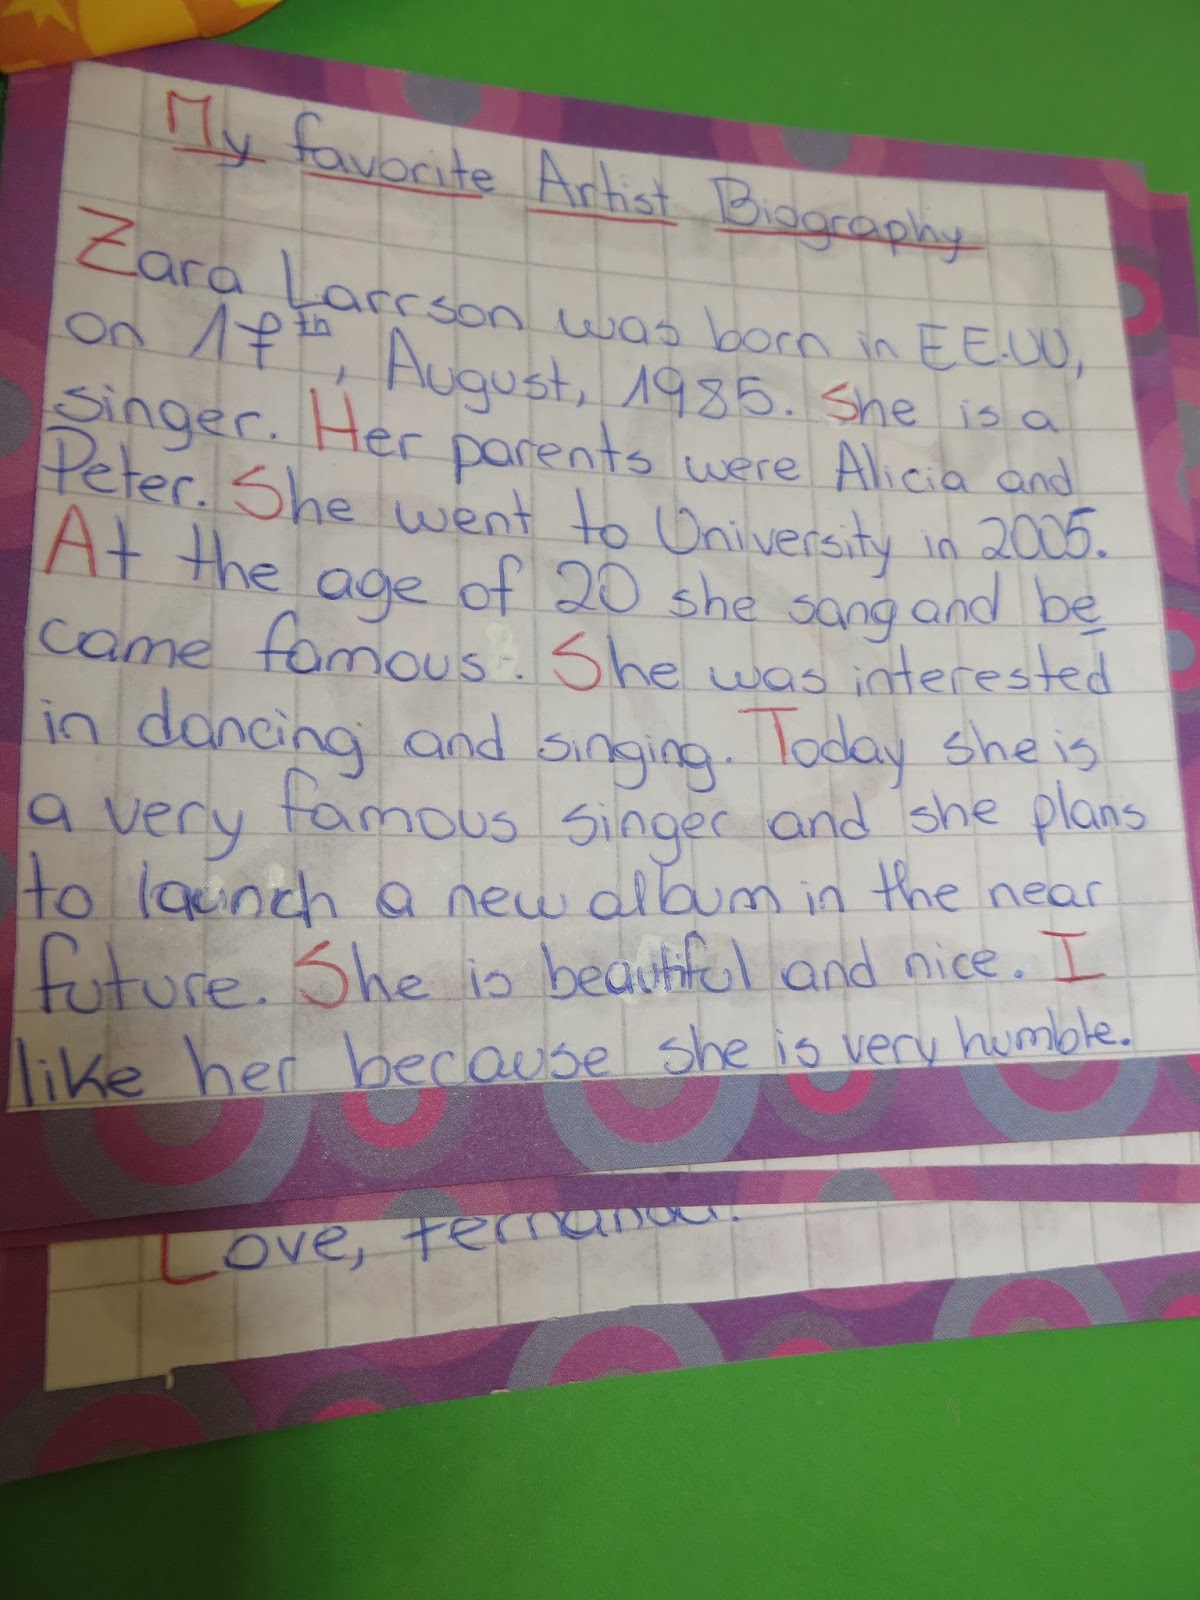 My favorite Artist Biography
Zara Larrson was born in EE.UU,
on 17th, August, 1985. She is a
singer. Her parents were Alicia and
Peter. She went to University in 2005.
At the age of 20 she sang and be
came famous. She was interested
in dancing and singing. Today she is
a very famous singer and she plans
to launch a new album in the near
future. She is beautiful and nice. I
like her because she is very humble.
Love, Fernanda.